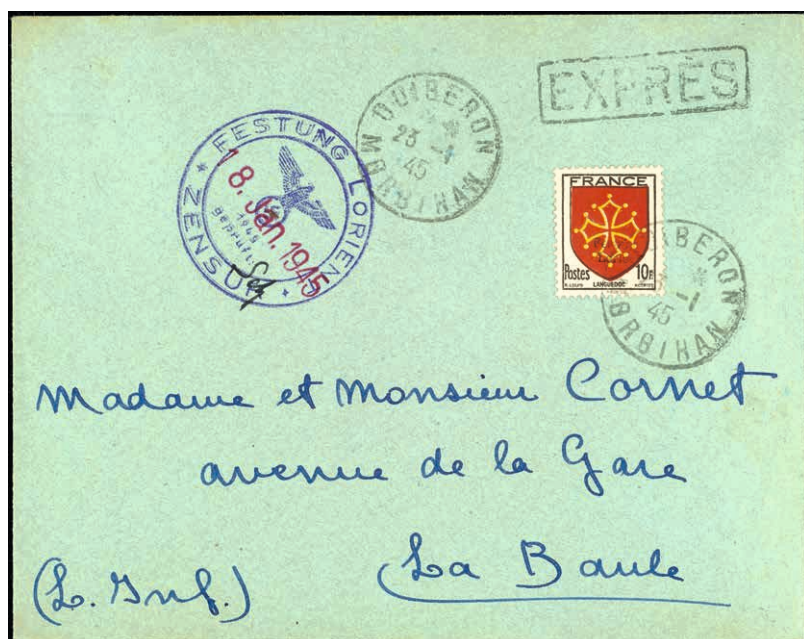 EXPRÈS
QUIBERON
23 -1
45
MORBIHAN
FESTUNG LORIENT
* ZENSUR *
18. Jan. 1945
1945
Geprüft
FRANCE
Postes 10F
LANGUEDOC
QUIBERON
-1
45
MORBIHAN
Madame et Monsieur Cornet
avenue de la Gare
(L. Inf.) La Baule